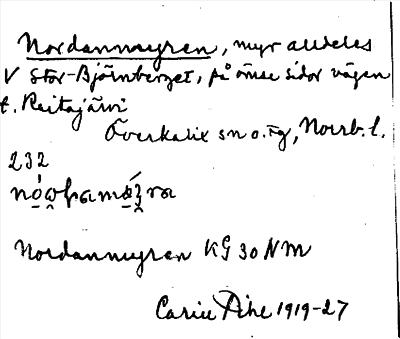 Nordanmyren, myr alldeles
V Stor-Björnberget, på ömse sidor vägen
t. Raitajärvi
Överkalix sn o. tg, Norrb. l.
232
Nordanmyren KG 30 NM
Carin Pihl 1919-27